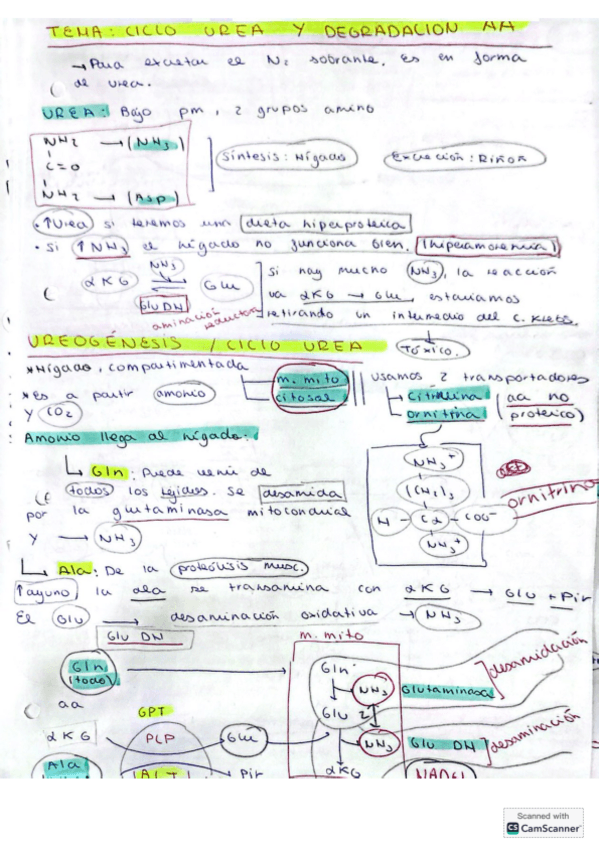 TEMA: CICLO UREA Y DEGRADACION AA
→ Para excretar el N2 sobrante, es en forma
de urea.
UREA: Bajo pm, 2 grupos amino
NH2 → (NH3)
C=O
NH2 → (Asp)
Síntesis: Hígado
Excreción: Riñón
• ↑Urea si tenemos una dieta hiperproteica
• si ↑NH3 el hígado no funciona bien. (hiperamonemia)
αKG NH3 Glu
Glu DH
aminación reductora
Si hay mucho NH3, la reacción
va αKG → Glu, estaríamos
retirando un intermedio del C. Krebs.
Tóxico.
UREOGÉNESIS / CICLO UREA
*Hígado, compartimentada
m. mito
citosol
*Es a partir amonio
y CO2
usamos 2 transportadores
Citrulina
ornitina
(aa no
proteico)
Amonio llega al hígado:
Gln: Puede venir de
todos los tejidos. Se desamida
por la glutaminasa mitocondrial
y → NH3
NH3+
(CH2)3
H - Cα - COO-
NH3+
ornitrino
Ala: De la proteólisis musc.
↑ayuno la ala se transamina con αKG → Glu + Pir
El Glu → desaminación oxidativa → NH3
Glu DH
m. mito
Gln
(todo)
aa
Gln
NH3
Glutaminasa
desamidación
Glu
αKG
GPT
PLP
Glu
NH3
Glu DH
desaminación
Ala
ALT
Pir
αKG
NADH
Scanned with
CS CamScanner